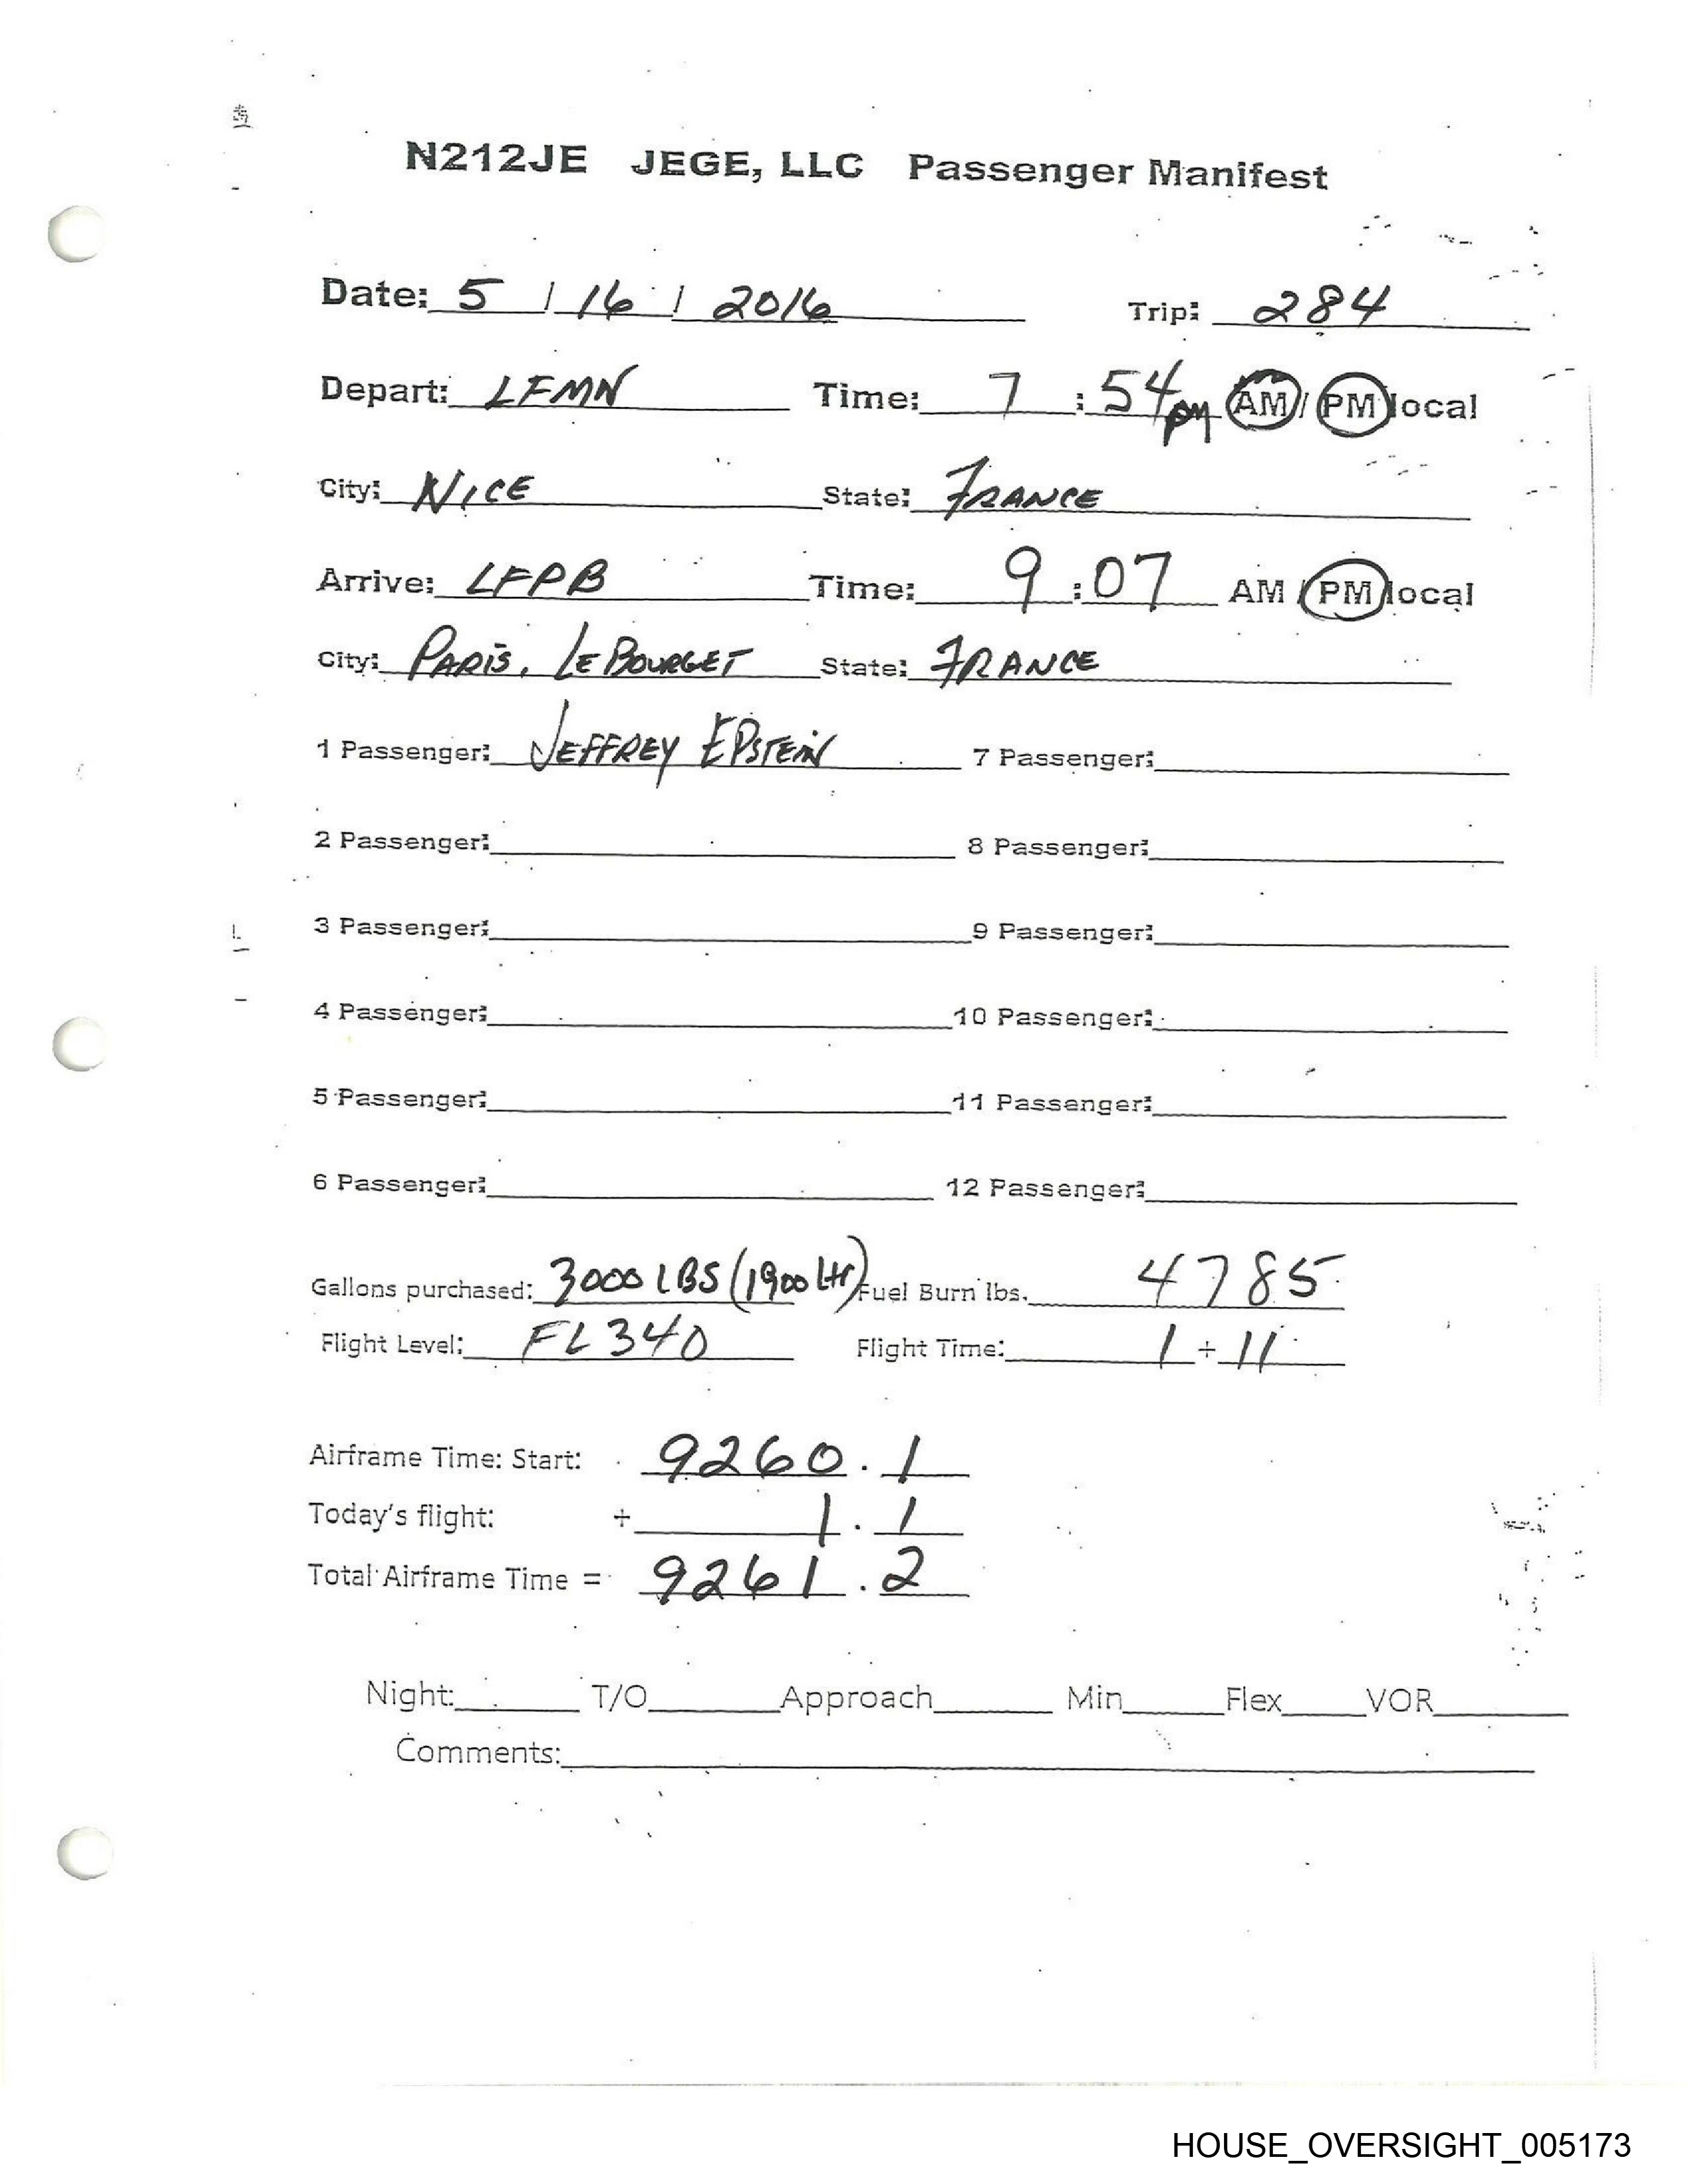 N212JE JEGE, LLC Passenger Manifest
Date: 5 / 16 / 2016 Trip: 284
Depart: LFMN Time: 7 : 54 pm AM / PM local
City: NICE State: FRANCE
Arrive: LFPB Time: 9 : 07 AM / PM local
City: PARIS, LE BOURGET State: FRANCE
1 Passenger: JEFFREY EPSTEIN 7 Passenger:
2 Passenger: 8 Passenger:
3 Passenger: 9 Passenger:
4 Passenger: 10 Passenger:
5 Passenger: 11 Passenger:
6 Passenger: 12 Passenger:
Gallons purchased: 3000 LBS (1900 Ltr) Fuel Burn lbs. 4785
Flight Level: FL 340 Flight Time: 1 + 11
Airframe Time: Start: 9260 . 1
Today's flight: + 1 . 1
Total Airframe Time = 9261 . 2
Night: T/O Approach Min Flex VOR
Comments:
HOUSE_OVERSIGHT_005173